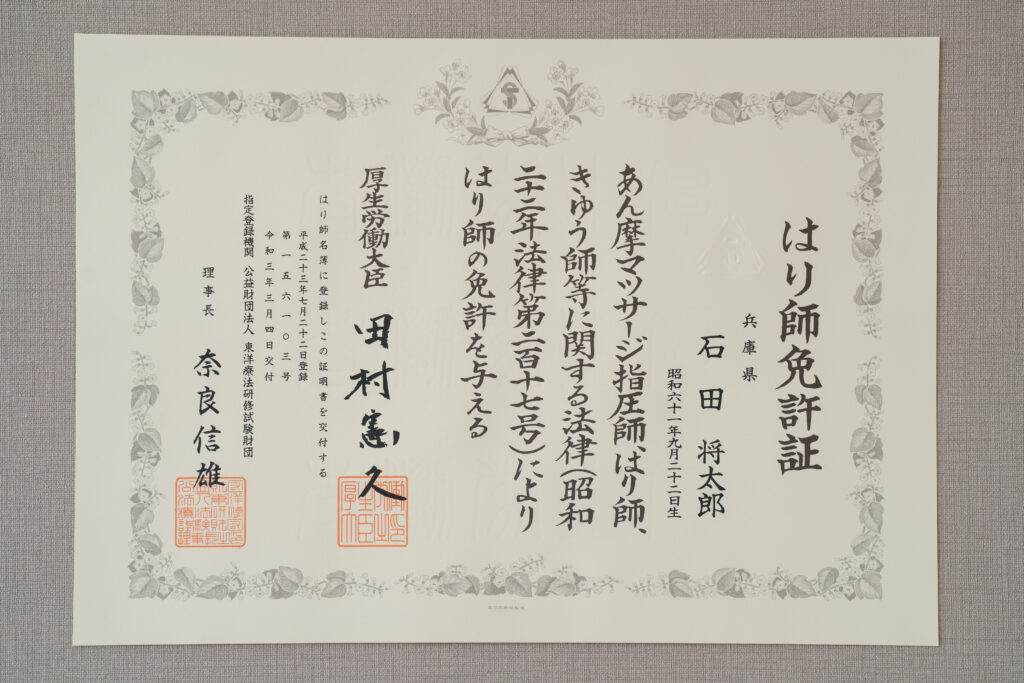 はり師免許証
兵庫県
石田 将太郎
昭和六十一年九月二十二日生
あん摩マツサージ指圧師、はり師、
きゆう師等に関する法律(昭和
二十二年法律第二百十七号)により
はり師の免許を与える
厚生労働大臣 田村憲久
はり師名簿に登録しこの証明書を交付する
平成二十三年七月二十二日登録
第一五六一〇三号
令和三年三月四日交付
指定登録機関 公益財団法人 東洋療法研修試験財団
理事長 奈良信雄